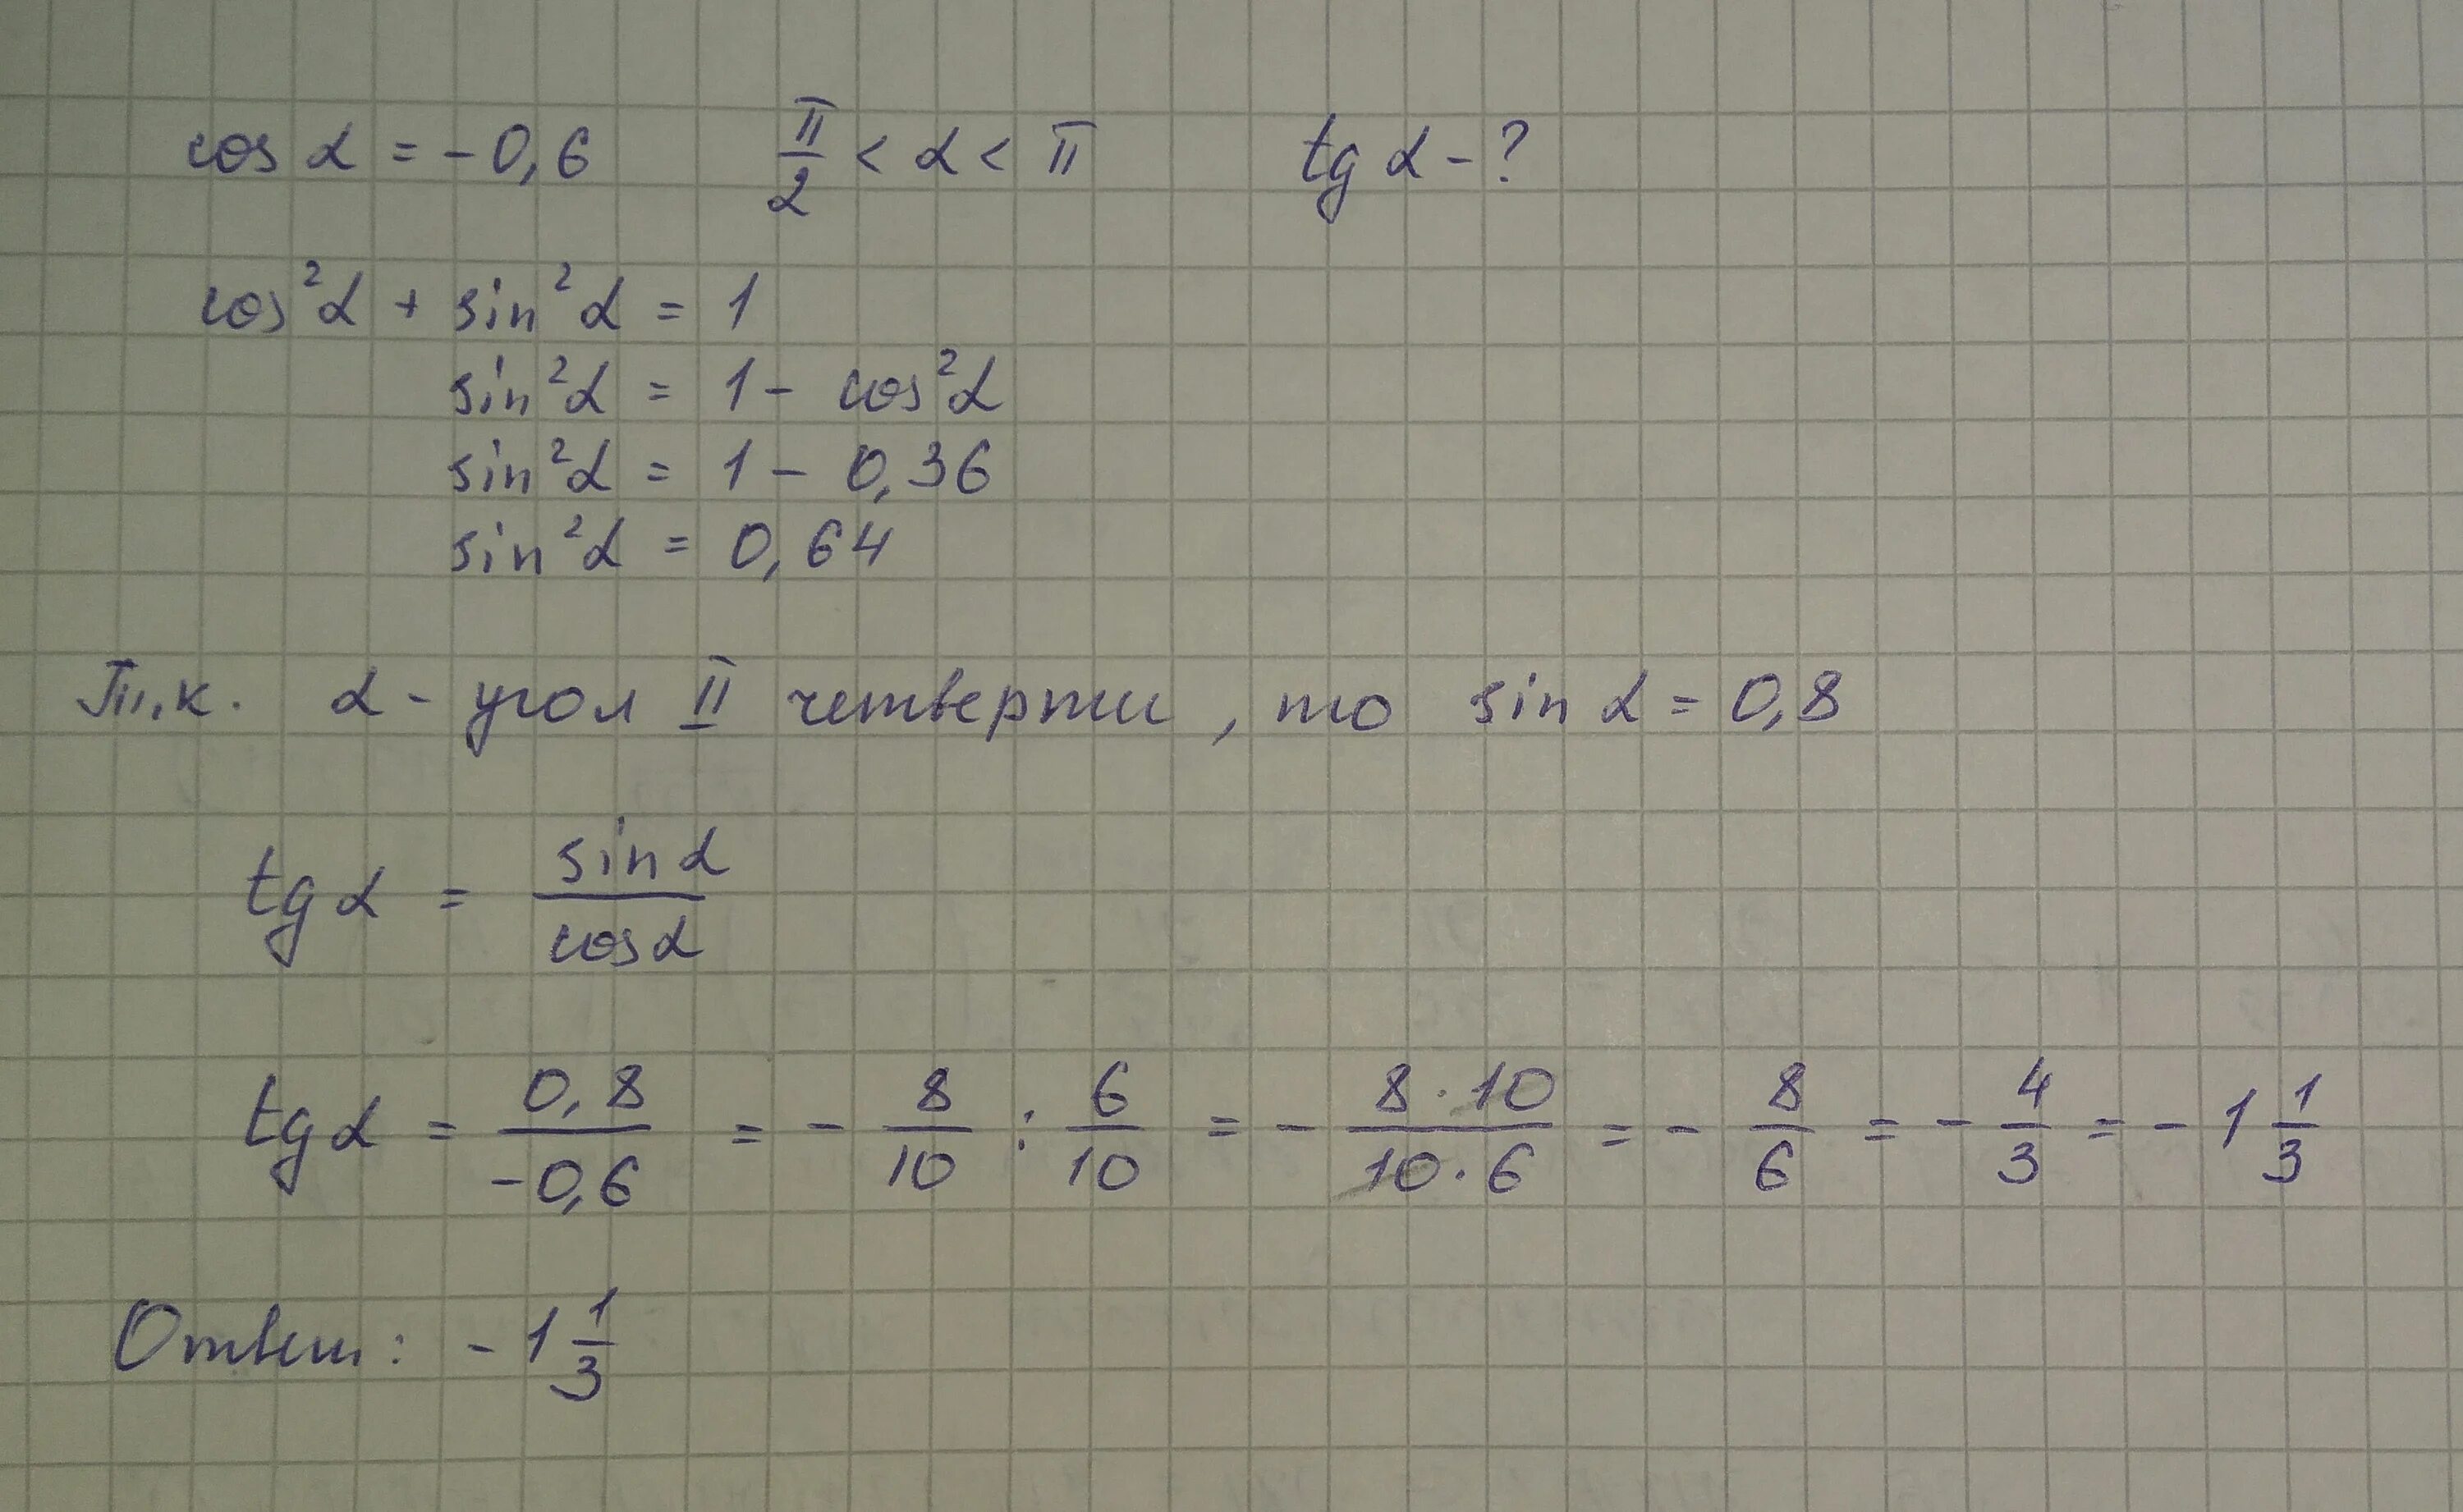 cos α = -0,6    π/2 < α < π    tg α - ?
cos²α + sin²α = 1
sin²α = 1 - cos²α
sin²α = 1 - 0,36
sin²α = 0,64
Т.к. α - угол II четверти, то sin α = 0,8
tg α = sin α / cos α
tg α = 0,8 / -0,6 = - 8/10 : 6/10 = - 8·10 / 10·6 = - 8/6 = - 4/3 = - 1 1/3
Ответ: - 1 1/3